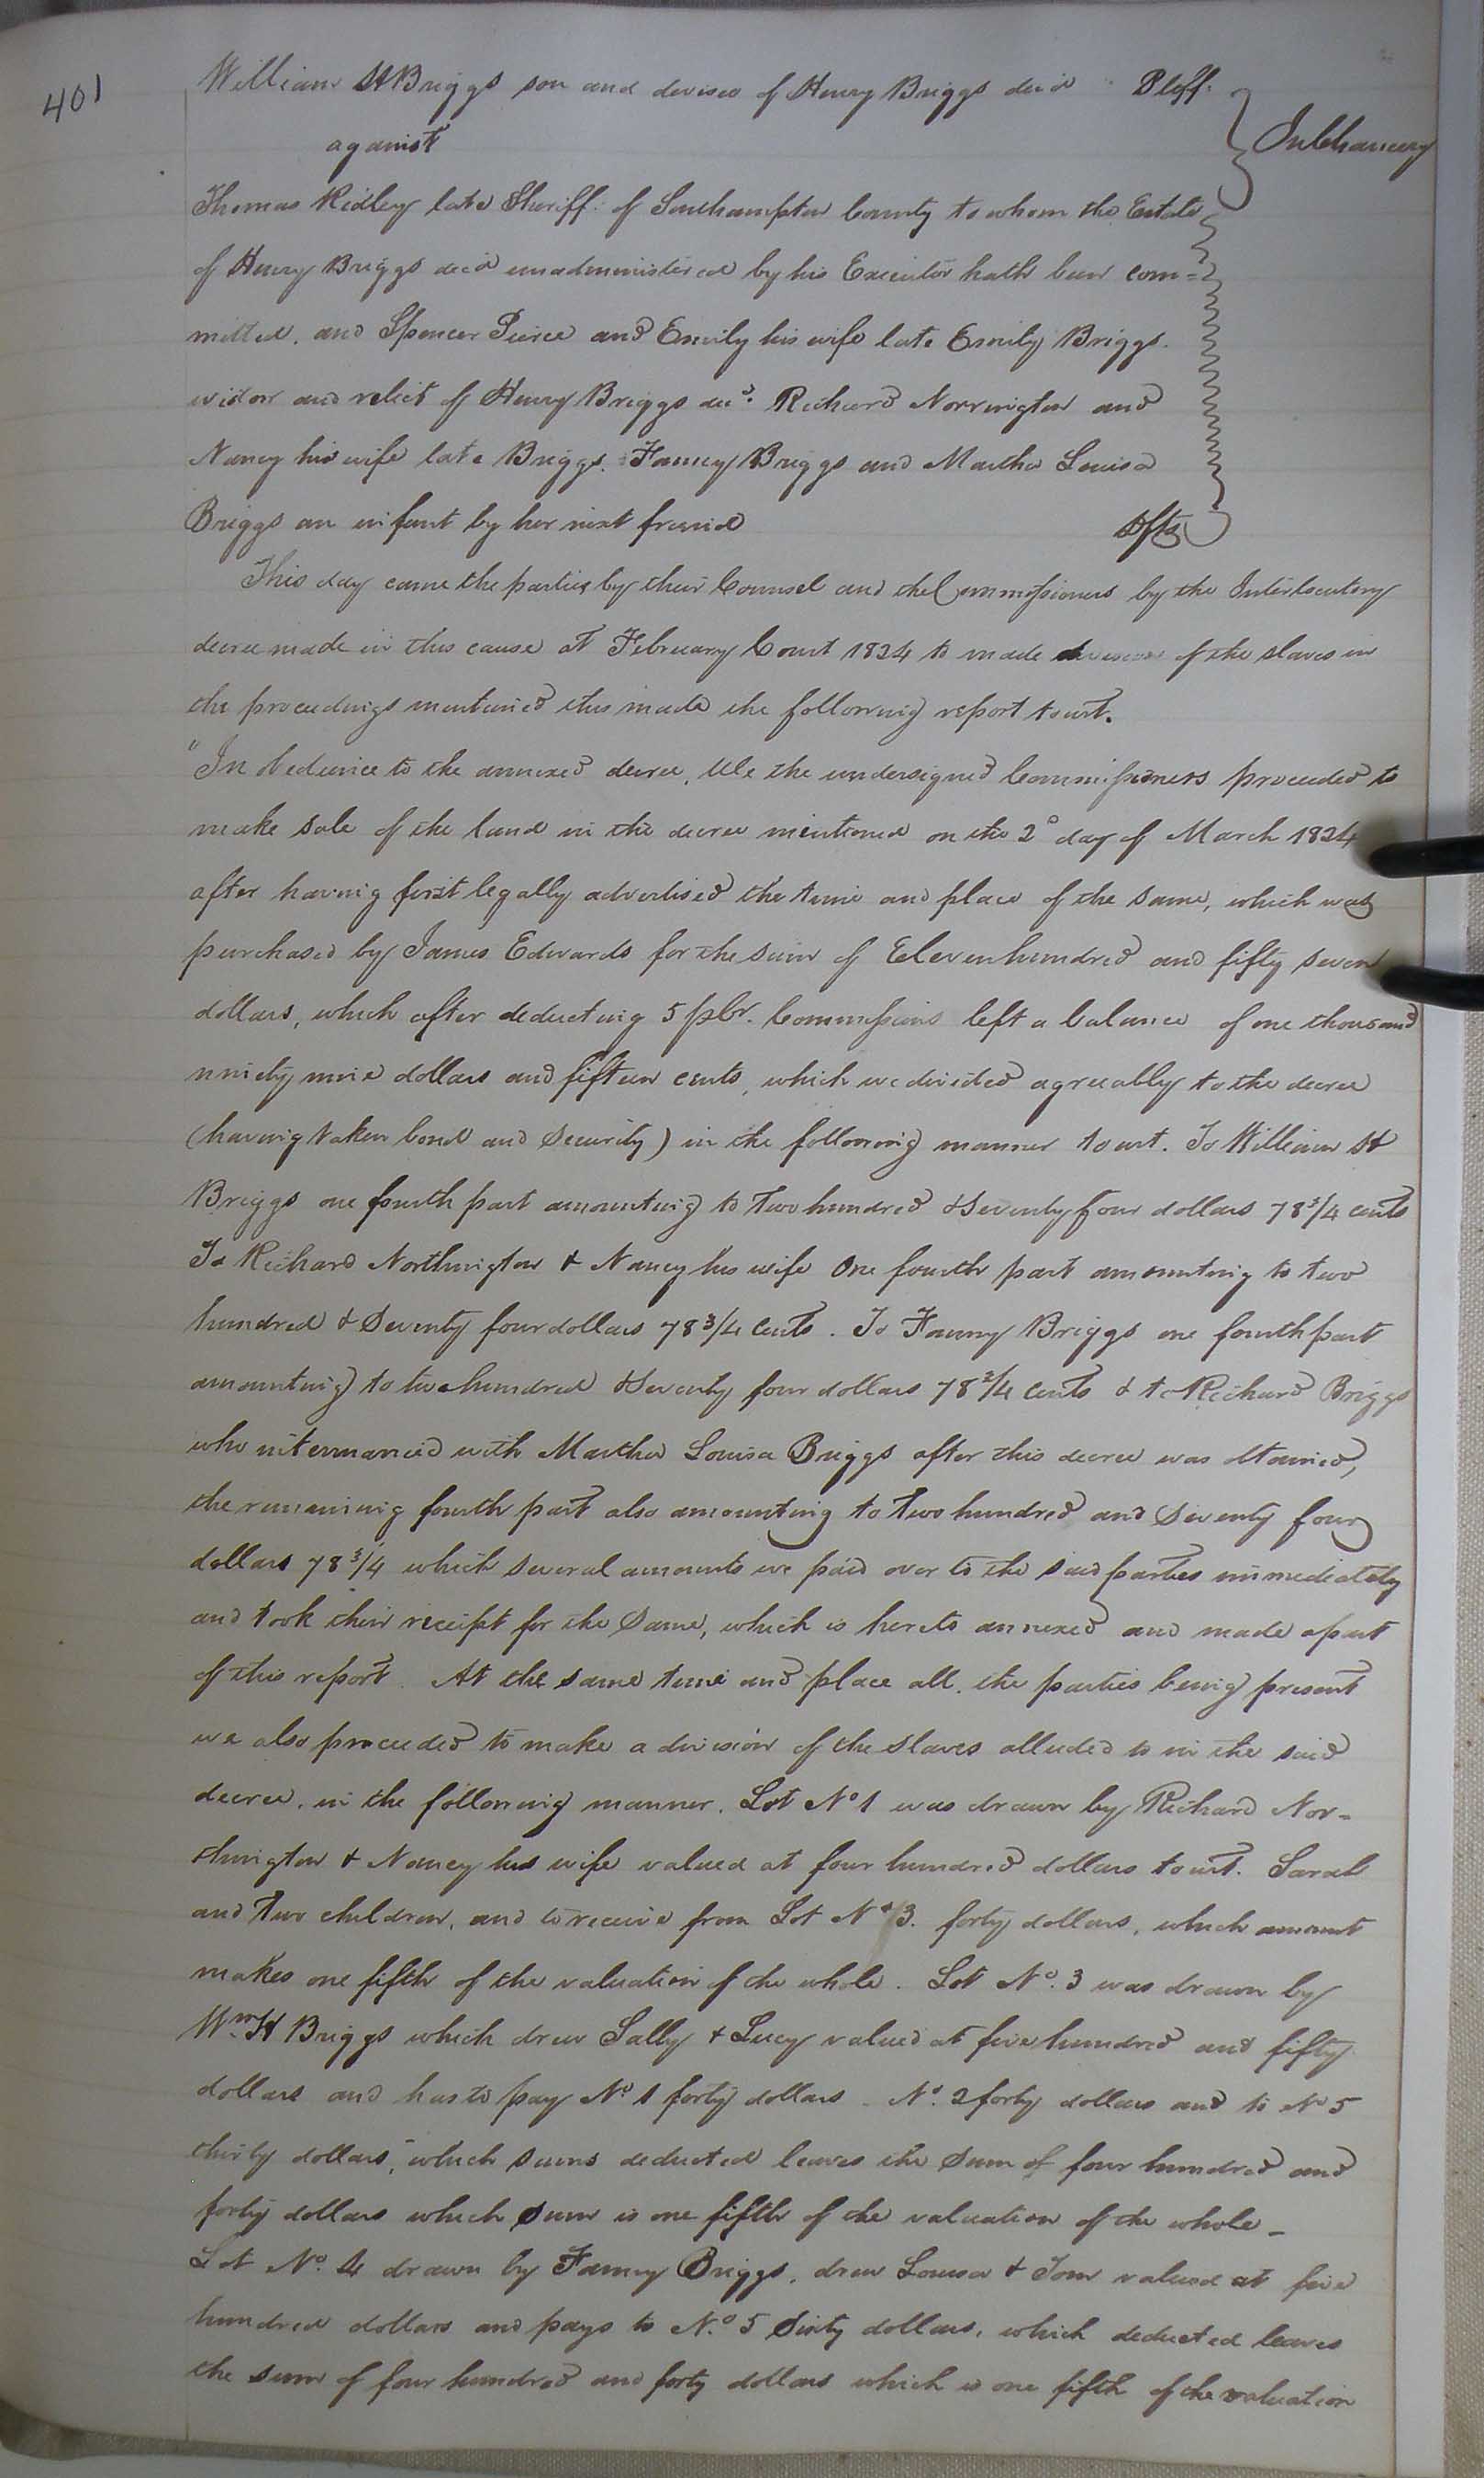 401
William H Briggs son and devisee of Henry Briggs decd Pltff.
against
In Chancery
Thomas Ridley late Sheriff of Southampton County to whom the Estate
of Henry Briggs decd unadministered by his Executor hath been com=
mitted. and Spencer Pierce and Emily his wife late Emily Briggs.
widow and relict of Henry Briggs decd. Richard Norrington and
Nancy his wife late Briggs. Fanny Briggs and Martha Louisa
Briggs an infant by her next friend Dfts
This day came the parties by their Counsel and the Commissioners by the Interlocutory
decree made in this cause at February Court 1824 to made division of the slaves in
the proceedings mentioned this made the following report towit.
"In obedience to the annexed decree, We the undersigned Commissioners proceeded to
make sale of the land in the decree mentioned on the 2d day of March 1824
after having first legally advertised the time and place of the same, which was
purchased by James Edwards for the sum of Eleven hundred and fifty seven
dollars, which after deducting 5 pCr. Commissions left a balance of one thousand
ninety nine dollars and fifteen cents, which we divided agreeably to the decree
(having taken bond and Security) in the following manner towit. To William H
Briggs one fourth part amounting to two hundred & Seventy four dollars 78 3/4 cents
To Richard Northington & Nancy his wife One fourth part amounting to two
hundred & Seventy four dollars 78 3/4 Cents. To Fanny Briggs one fourth part
amounting to two hundred & Seventy four dollars 78 3/4 Cents & to Richard Briggs
who intermarried with Martha Louisa Briggs after this decree was obtained,
the remaining fourth part also amounting to two hundred and Seventy four
dollars 78 3/4 which several amounts we paid over to the said parties immediately
and took their receipt for the Same, which is hereto annexed and made apart
of this report. At the same time and place all. the parties being present
we also proceeded to make a division of the slaves alluded to in the said
decree. in the following manner. Lot No 1 was drawn by Richard Nor=
thington & Nancy his wife valued at four hundred dollars towit. Sarah
and two children, and to receive from Lot No 3. forty dollars, which amount
makes one fifth of the valuation of the whole. Lot No. 3 was drawn by
Wm. H Briggs which drew Sally & Lucy valued at five hundred and fifty
dollars and has to pay No 1 forty dollars. No. 2 forty dollars and to No 5
thirty dollars, which sums deducted leaves the Sum of four hundred and
forty dollars which Sum is one fifth of the valuation of the whole _
Lot No. 4 drawn by Fanny Briggs. drew Louisa & Tom valued at five
hundred dollars and pays to No. 5 Sixty dollars, which deducted leaves
the sum of four hundred and forty dollars which is one fifth of the valuation